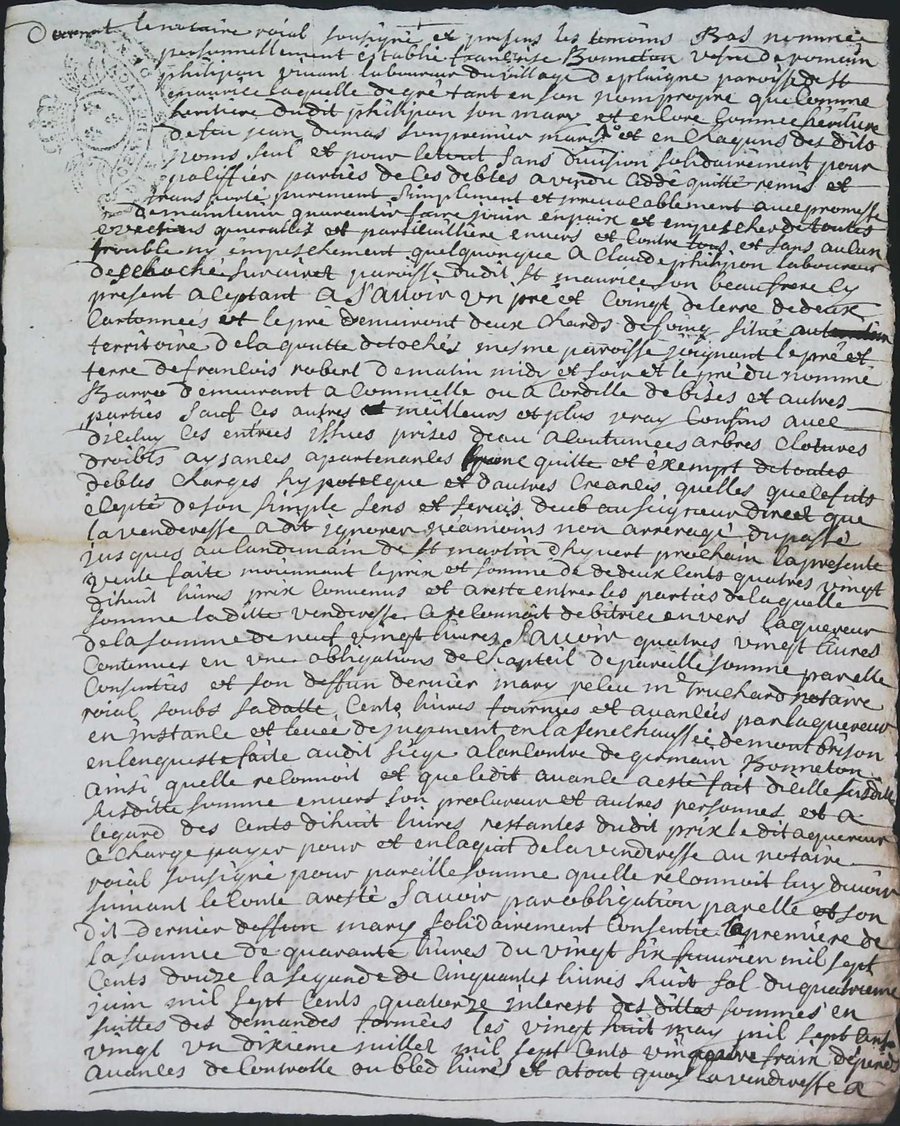 Devant le notaire roial sousigné et presens les temoins Bas nommés
personnellement establie françoise Bonneton vefve de romain
philipion vivant laboureur du village de plaigne paroisse de st
maurice laquelle de gré tant en son nom propre que comme
heritiere dudit philipion son mary et encore comme heritiere
de feu jean dumas son premier mary et en chaquns des dits
noms seul et pour le tout sans division solidairement pour
satisfaire parties de ses debtes a vendu ceddé quitté remis et
transporté purement simplement et irrevocablement avec promesse
de maintenir guarentir faire jouir en paix et empescher de toutes
evictions generalles et particulliere envers et contre tous et sans aulcun
trouble ny empeschement quelquonque a Claude philipion laboureur
de paroisse dudit st maurice son beau frere icy
present aceptant a sauoir un pré et coingt de terre de deux
Cartonnées et le pré d'enuiront deux chards de foing situé
territoire de la goutte de tochés mesme paroisse joignant le pré et
terre de francois robert de matin midy et soir et le pré du nommé
Barro demeurant a Commelle ou a Cordelle de bises et autres
parties sauf les autres meilleurs et plus vray confins avec
diceluy ces entrées issues prises deau acoutumées arbres clotures
droibts aysances apartenances quitte et exempt de toutes
debtes charges hypotecque et d'autres creances quelles quelesuits
excepté de son simple sens et servis deub au seigneur direct que
la venderesse a dit ignorer néamoins non arreragé du passé
jusques au landemain de st martin d'hyvert prochain la presente
vente faite moiennant le prix et somme de deux cents quatres vingt
dihuit livres prix convenus et aresté entre les parties de laquelle
somme laditte venderesse ce reconnoit debitrice envers laquereur
de la somme de neuf vingt livres sauoir quatres vingt livres
Contenues en une obligations de chapteil de pareille somme par elle
Consenties et son deffun dernier mary reçeu me Truchard notaire
roial soubs sa datte, Cents livres fournies et avancées par laquereur
en instance et levée de jugement en la senechaussée de mont brison
en lenqueste faite audit siege a lencontre de germain Bonneton
ainsi quelle reconnoit et que ledit avance a esté fait dicelle susditte
susditte somme envers son procureur et autres personnes et a
legard des cents dihuit livres restantes dudit prix le dit aquereur
a charge payer pour et en laquit de la venderesse au notaire
roial sousigné pour pareille somme quelle reconnoit luy devoir
suivant le conte aresté sauoir par obligation par elle et son
dit dernier deffun mary solidairement consentie la premiere de
la somme de quarante livres du vingt six feuvrier mil sept
Cents douze la segonde de cinquantes livres huit sol du quatrieme
juin mil sept Cents quatorze interest des dittes sommes en
suittes des demandes formées les vingt huit may mil sept Cents
vingt un dixieme juillet mil sept Cents vingt frais depends
avances de Controlle ou bled livrés et a tout quoy la venderesse a